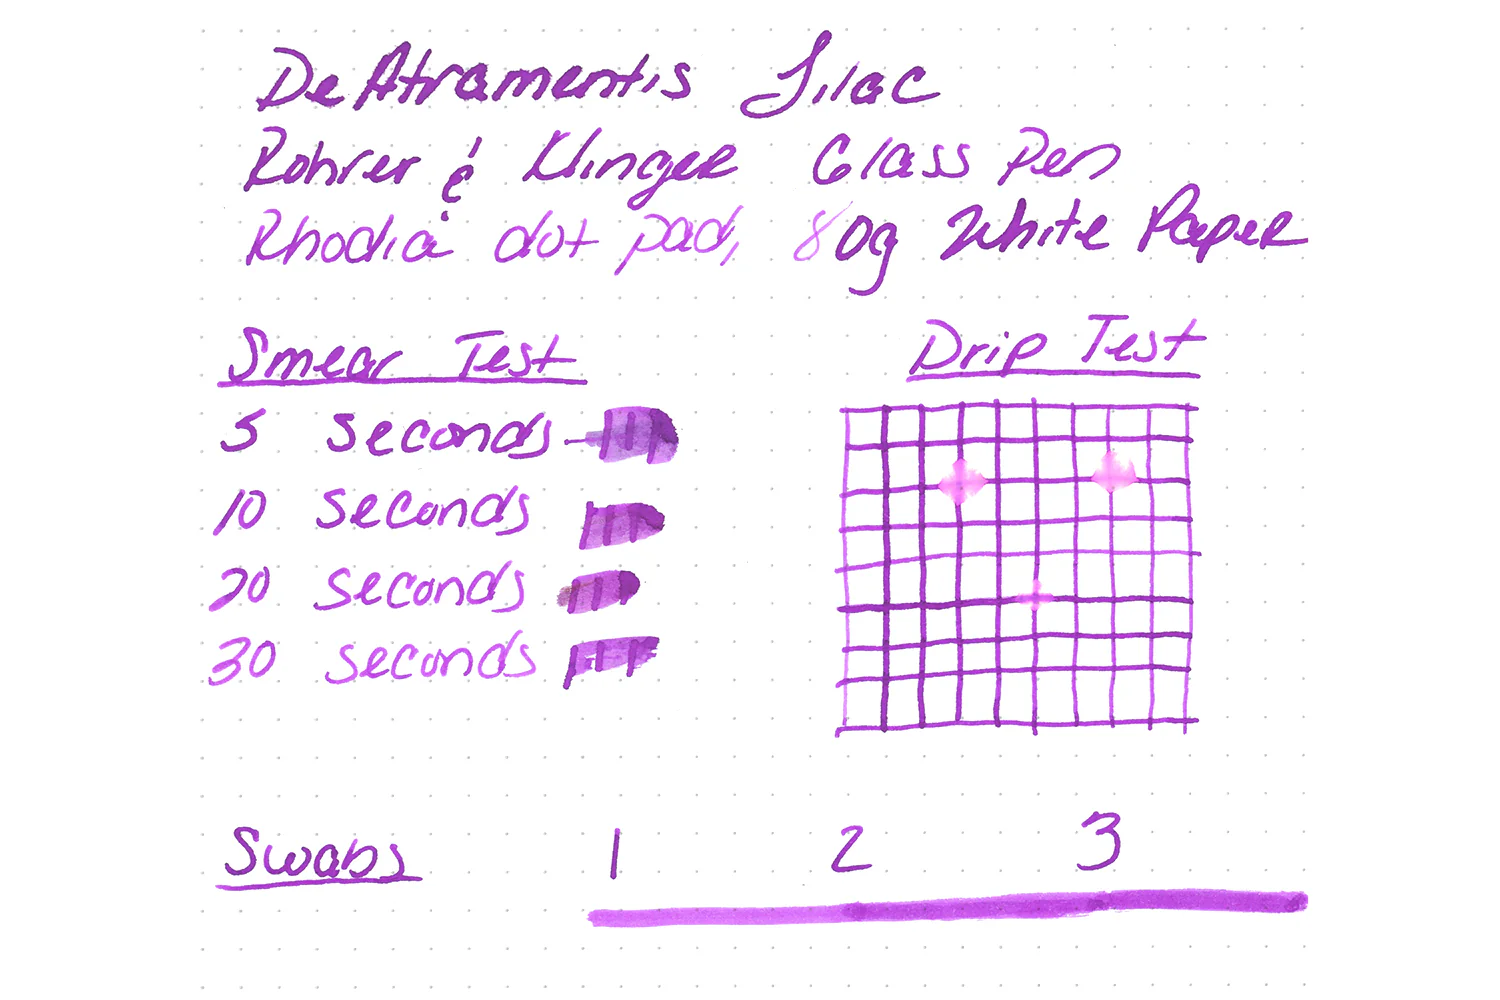 DeAtramentis Lilac
Rohrer & Klinger Glass Pen
Rhodia dot pad, 80g White Paper
Smear Test
5 seconds
10 seconds
20 seconds
30 seconds
Drip Test
Swabs 1 2 3